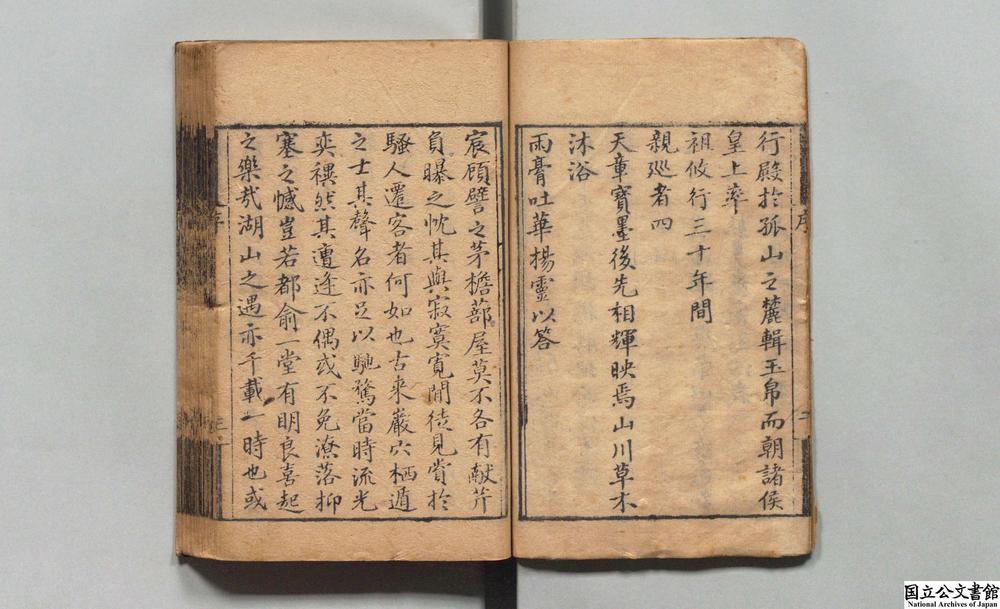 行殿於孤山之麓輯玉帛而朝諸侯
皇上率
祖攸行三十年間
親廵者四
天章寶墨後先相輝映焉山川草木
沐浴
雨膏吐華揚靈以答
序
二
宸顧譬之茅檐蔀屋莫不各有献芹
負曝之忱其與寂寞寛閒徒見賞於
騷人遷客者何如也古来巖穴栖遁
之士其聲名亦足以馳騖當時流光
奕禩然其遭逢不偶或不免潦落抑
塞之憾豈若都俞一堂有明良喜起
之樂㢤湖山之遇亦千載一時也或
序
三
国立公文書館
National Archives of Japan